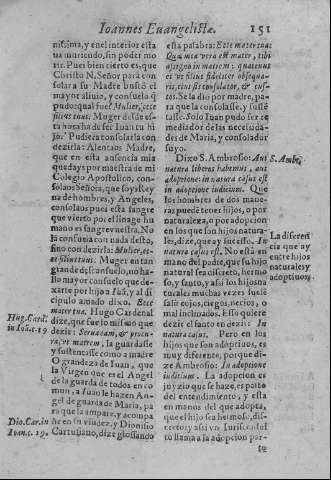 Ioannes Euangelistæ. 151
nissima, y en el interior esta
ua muriendo, sin poder mo
rir. Pues bien cierto es, que
Christo N. Señor para con
solar a su Madre buscó el
mayor aliuio, y consuelo q̃
pudo: qual fue? Mulier, ecce
filius tuus. Muger desde es-
ta hora ha de ser Iuan tu hi
jo. Pudiera consolarla con
dezirla: Alentaos Madre,
que en esta ausencia mia
quedays por maestra de mi
Colegio Apostolico, con-
solaos Señora, que soys Rey
na de hombres, y Angeles,
consolaos pues esta sangre
que vierto por el linage hu
mano es sangre vuestra. No
la consuela con nada desto,
sino con dezirla: Mulier, ec-
ce filius tuus. Muger en tan
grande desconsuelo, no ha-
llo mayor consuelo que de-
xarte por hijo a Iuā, y al di
cipulo amado dixo. Ecce
mater tua. Hugo Cardenal
dize, que fue lo mismo que
dezir: Seruandam, &
ra, vt matrem, la guardasse
y sustentasse como a madre
O grandeza de Iuan, que
la Virgen que es el Angel
de la guarda de todos en co
mun, a Iuan le hazen An-
gel de guarda de Maria, pa
ra que la ampare, y acompa
ñe en su viudez, y Dionisio
Cartusiano, dize glossando
Hug. Card.
in Ioan. 19
Dio. Car. in
Ioan. c. 19.
esta palabra: Ecce mater tua:
Quæ me vera est mater, tibi
assigno in matrem, quatenus
ei vt filius fideliter obsequa-
ris, eius sis consolator, & cus-
tos. Se la dio por madre, pa-
ra que la consolasse, y susté
tasse. Solo Iuan pudo ser re
mediador de las necessida-
des de Maria, y consolador
suyo.
Dixo S. Ambrosio: Aut
natura liberos habemus, aut
adoptione: in natura casus est
in adoptione iudicium. Que
los hombres de dos mane-
ras puede tener hijos, o por
naturaleza, o por adopcion
en los que son hijos natura-
les, dize, que ay sucesso. In
natura casus est. No está en
mano del padre, que su hijo
natural sea discreto, hermo
so, y santo, y assi los hijos na
turales muchas vezes suelē
salir cojos, ciegos, necios, o
mal inclinados. Esso quiere
dezir el santo en dezir: In
natura casus. Pero en los
hijos que son adoptiuos, es
muy diferente, porque di-
ze Ambrosio: In adoptione
iudicium. La adopcion es
juyzio que se haze, es parto
del entendimiento, y esta
en manos del que adopta,
que el hijo sea hermoso, dis-
creto: y assi vn Iurisconsul
to llama a la adopcion par-
S. Ambr.
La diferen
cia que ay
entre hijos
naturales y
adoptiuos.